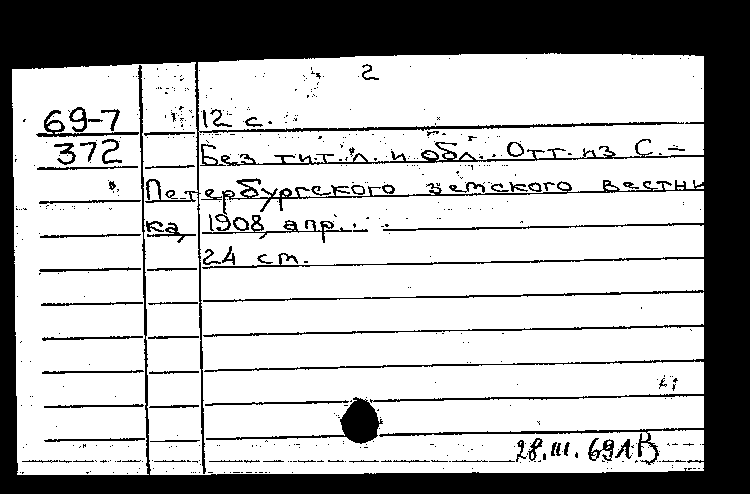 2
69-7 12 с.
372 Без тит. л. и обл. Отт. из С.-
Петербургского земского вестни
ка, 1908, апр.
24 см.
28.III.69